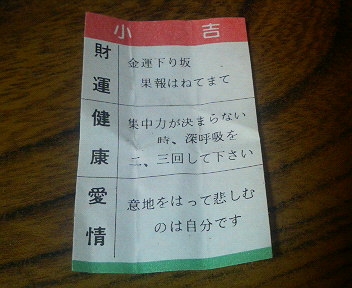 小吉
財運
金運下り坂
果報はねてまて
健康
集中力が決まらない
時、深呼吸を
二、三回して下さい
愛情
意地をはって悲しむ
のは自分です